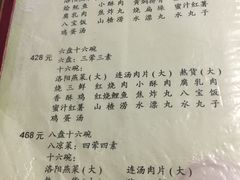 腐乳肉 焦炸丸 八宝饭 蜜汁红薯
鸡蛋汤 山楂涝 水漂丸 水丸子
428元 六盘十六碗
六盘：三荤三素
十六碗：
洛阳燕菜(大) 连汤肉片(大) 熬货(大)
烧三鲜 红烧肉 小酥肉 腐乳肉
香酥鸡 红烧鲤鱼 焦炸丸 八宝饭
蜜汁红薯 山楂涝 水漂丸 水丸子
鸡蛋汤
468元 八盘十六碗
八凉菜：四荤四素
十六碗：
洛阳燕菜(大) 连汤肉片(大)